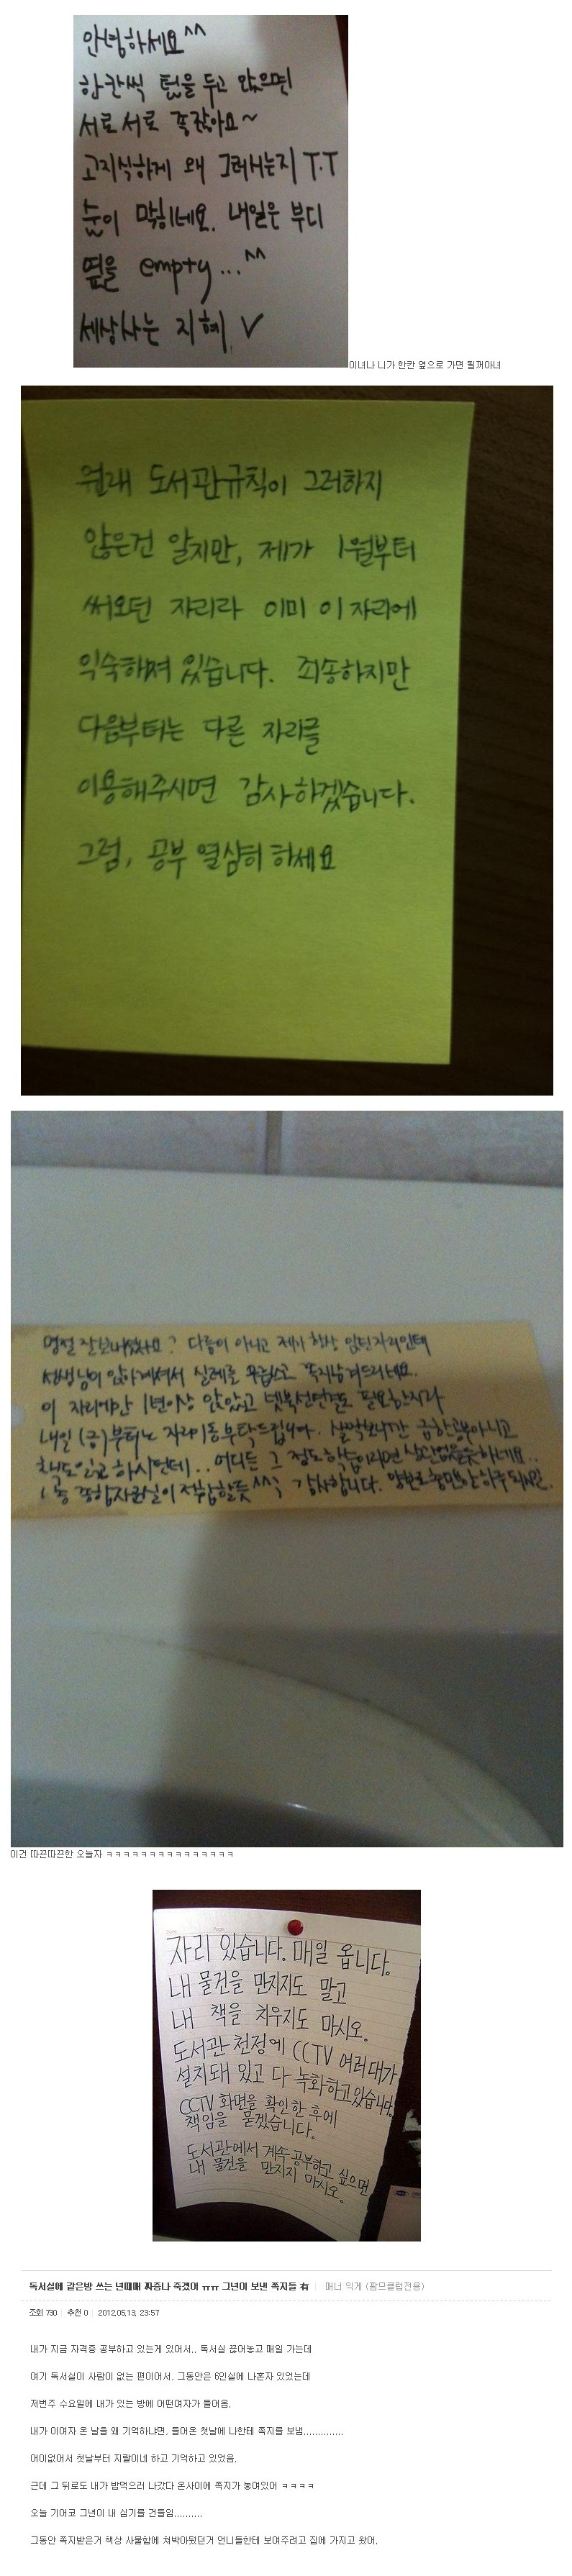 안녕하세요^^
한칸씩 텀을 두고 앉으면
서로서로 좋잖아요~
고지식하게 왜 그러시는지 T.T
숨이 막히네요. 내일은 부디
옆을 empty...^^
세상사는 지혜, V
이녀나 니가 한칸 옆으로 가면 될꺼아녀
원래 도서관규칙이 그러하지
않은건 알지만, 제가 1월부터
써오던 자리라 이미 이 자리에
익숙해져 있습니다. 죄송하지만
다음부터는 다른 자리를
이용해주시면 감사하겠습니다.
그럼, 공부 열심히 하세요
명절 잘보내셨나요? 다름이 아니고 제가 항상 앉던자리인데
선생님이 앉아계셔서 실례를 무릅쓰고 쪽지남겨드리네요.
이 자리에만 1년이상 앉았고 넷북선연결도 필요한지라
내일 (금)부터는 자리이동부탁드립니다.
책도읽고 하시던데.. 어디든 그 정도학습이라면 상관없을듯하네요..
1층 종합자료실이 적합할듯^^; 감사합니다.
이건 따끈따끈한 오늘자 ㅋㅋㅋㅋㅋㅋㅋㅋㅋㅋㅋㅋㅋㅋㅋ
자리 있습니다. 매일 옵니다.
내 물건을 만지지도 말고
내 책을 치우지도 마시오.
도서관 천정에 CCTV 여러대가
설치돼 있고 다 녹화하고있습니다.
CCTV 화면을 확인한 후에
책임을 묻겠습니다.
도서관에서 계속 공부하고 싶으면
내 물건을 만지지 마시오.
독서실에 같은방 쓰는 년때매 짜증나 죽겠어 ㅠㅠ 그년이 보낸 쪽지들 有 매너 익게 (팜므클럽전용)
조회 730 추천 0 2012.05.13, 23:57
내가 지금 자격증 공부하고 있는게 있어서.. 독서실 끊어놓고 매일 가는데
여기 독서실이 사람이 없는 편이어서, 그동안은 6인실에 나혼자 있었는데
저번주 수요일에 내가 있는 방에 어떤여자가 들어옴.
내가 이여자 온 날을 왜 기억하냐면, 들어온 첫날에 나한테 쪽지를 보냄..............
어이없어서 첫날부터 지랄이네 하고 기억하고 있었음.
근데 그 뒤로도 내가 밥먹으러 나갔다 온사이에 쪽지가 놓여있어 ㅋㅋㅋㅋ
오늘 기어코 그년이 내 심기를 건들임..........
그동안 쪽지받은거 책상 사물함에 쳐박아뒀던거 언니들한테 보여주려고 집에 가지고 왔어.